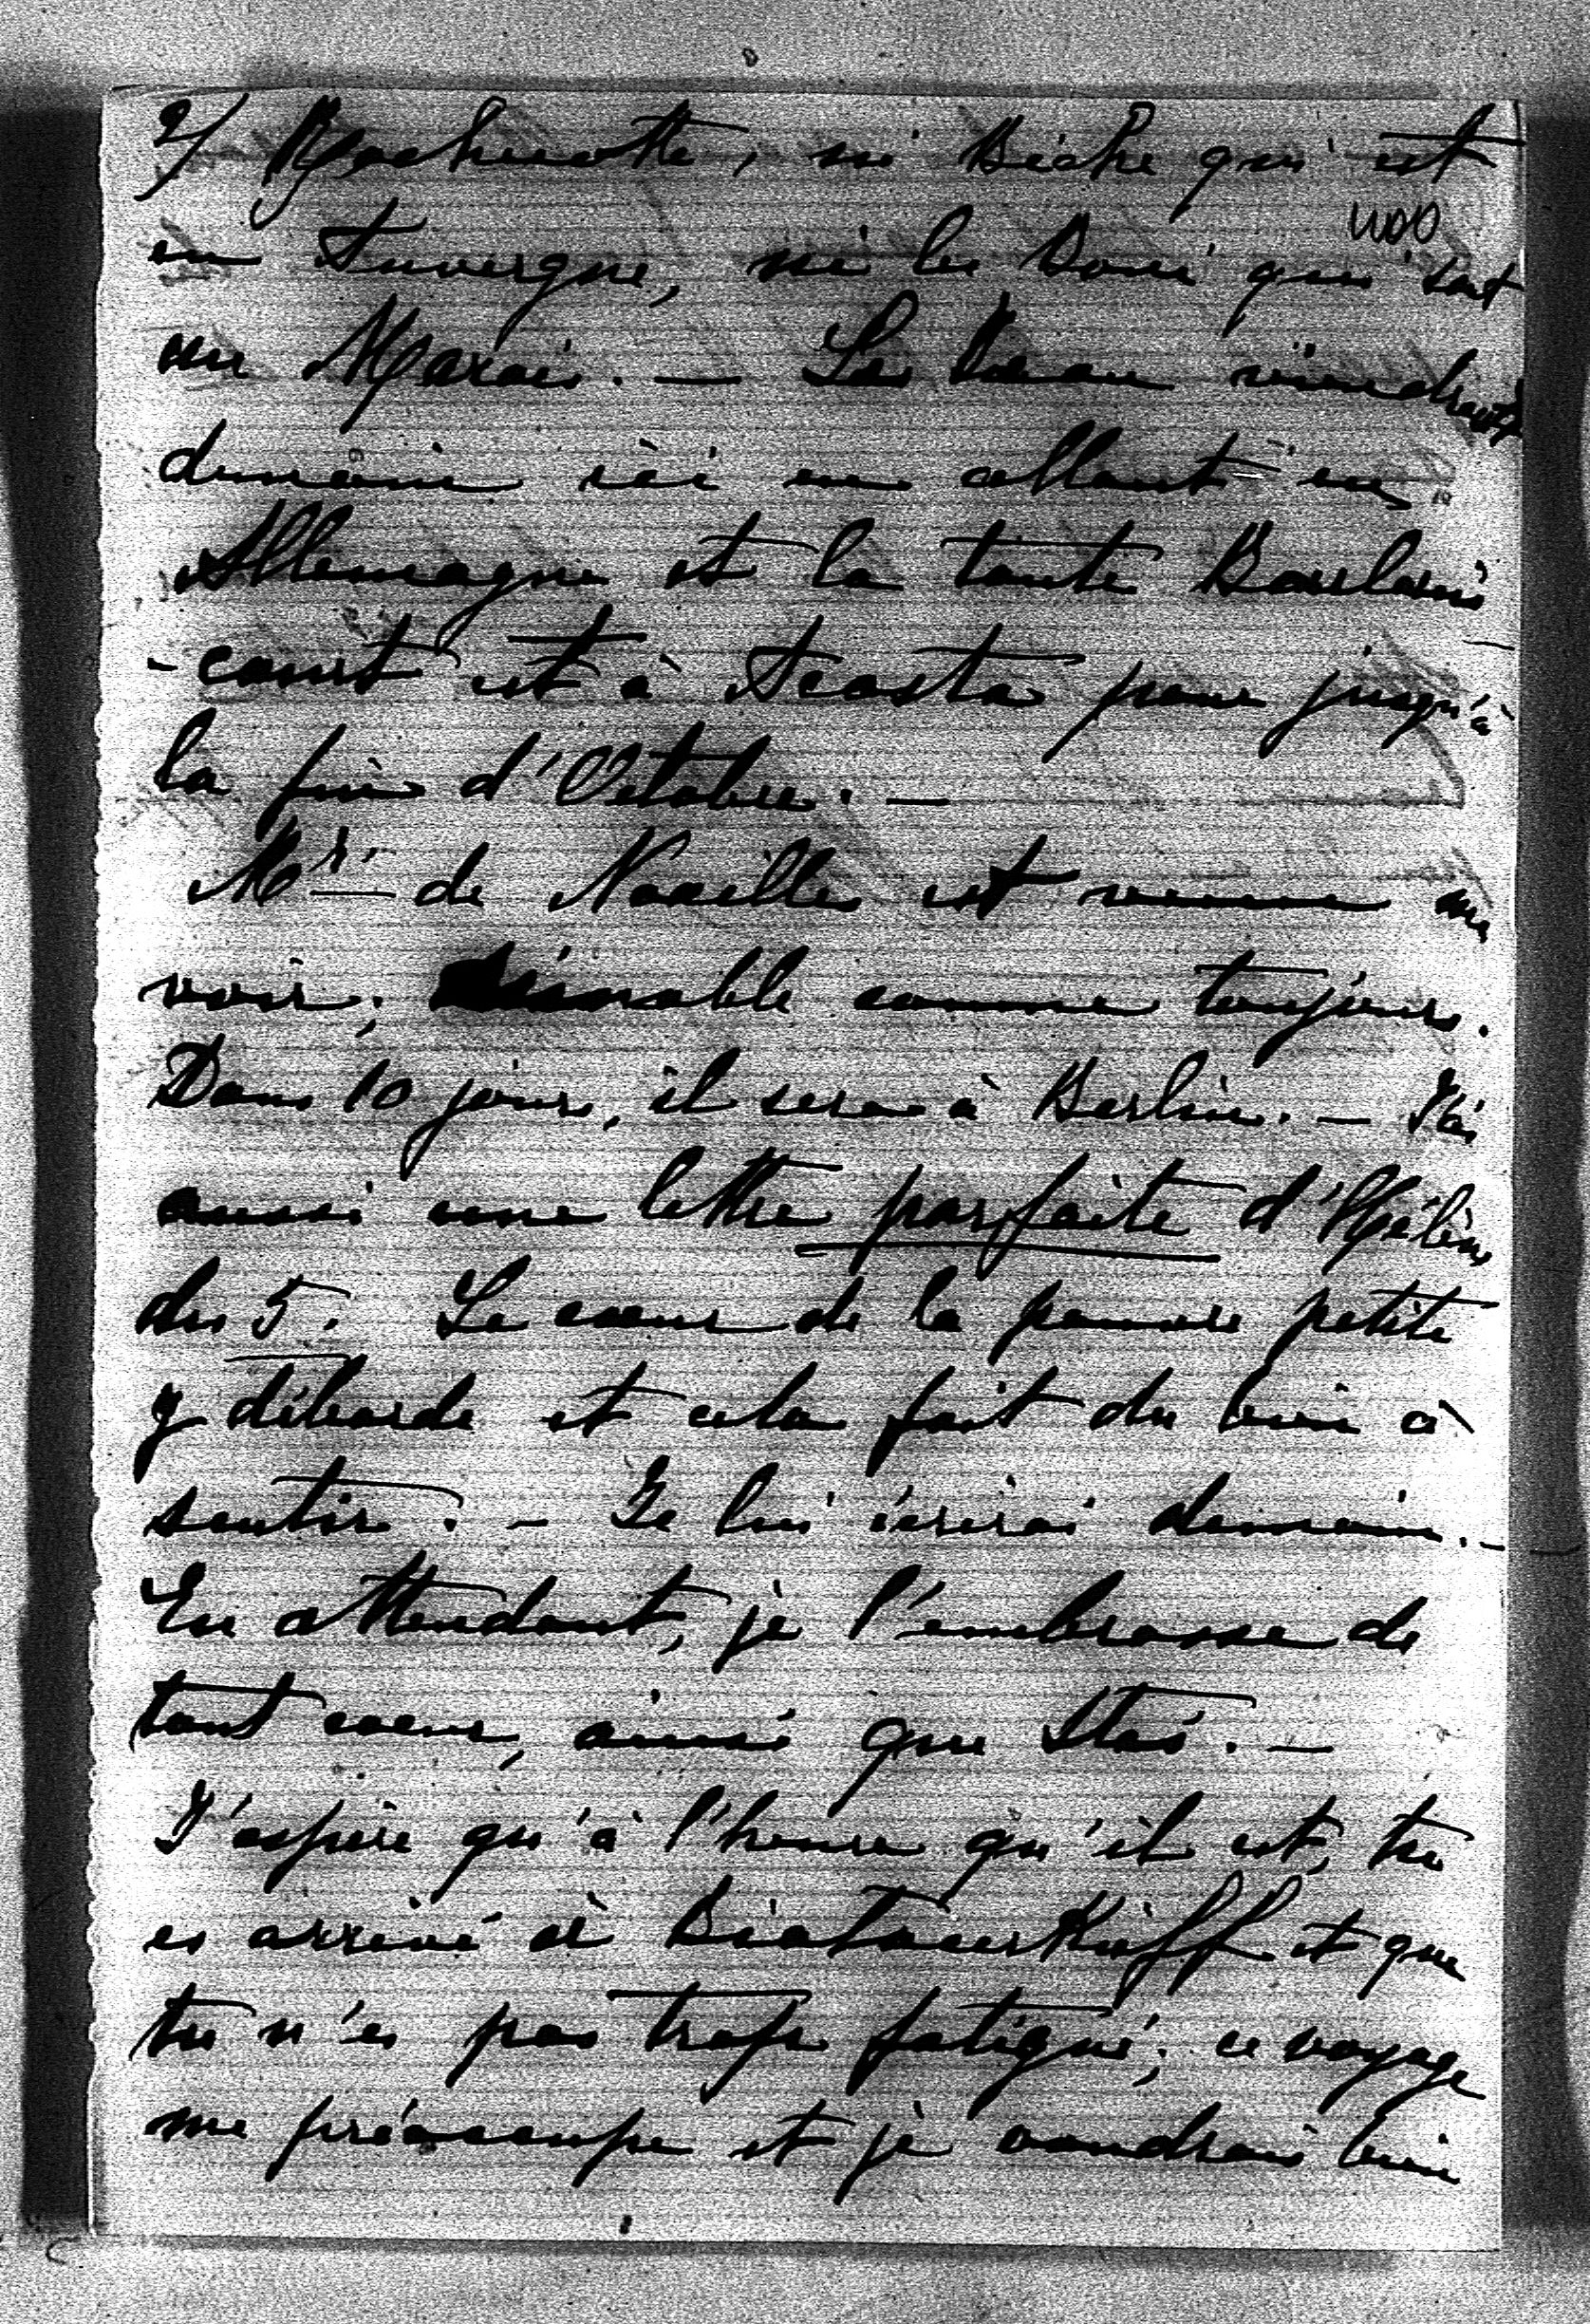 2/ Rochecotte, ni Biche qui est
en Auvergne, ni les Boni qui sont
au Marais. — Les viendront
demain ici en allant en
Allemagne et la tante
-court est à Acosta pour jusqu'à
la fin d'Octobre. —
Mr. de Noailles est venu me
voir, aimable comme toujours.
Dans 10 jours, il sera à Berlin. — J'ai
aussi une lettre parfaite d'Hélène
du 5. Le cœur de la pauvre petite
y déborde et cela fait du bien à
sentir. — Je lui écrirai demain. —
En attendant, je l'embrasse de
tout cœur, ainsi que Stas. —
J'espère qu'à l'heure qu'il est, tu
es arrivé à et que
tu n'es pas trop fatigué; ce voyage
me préoccupe et je voudrais bien